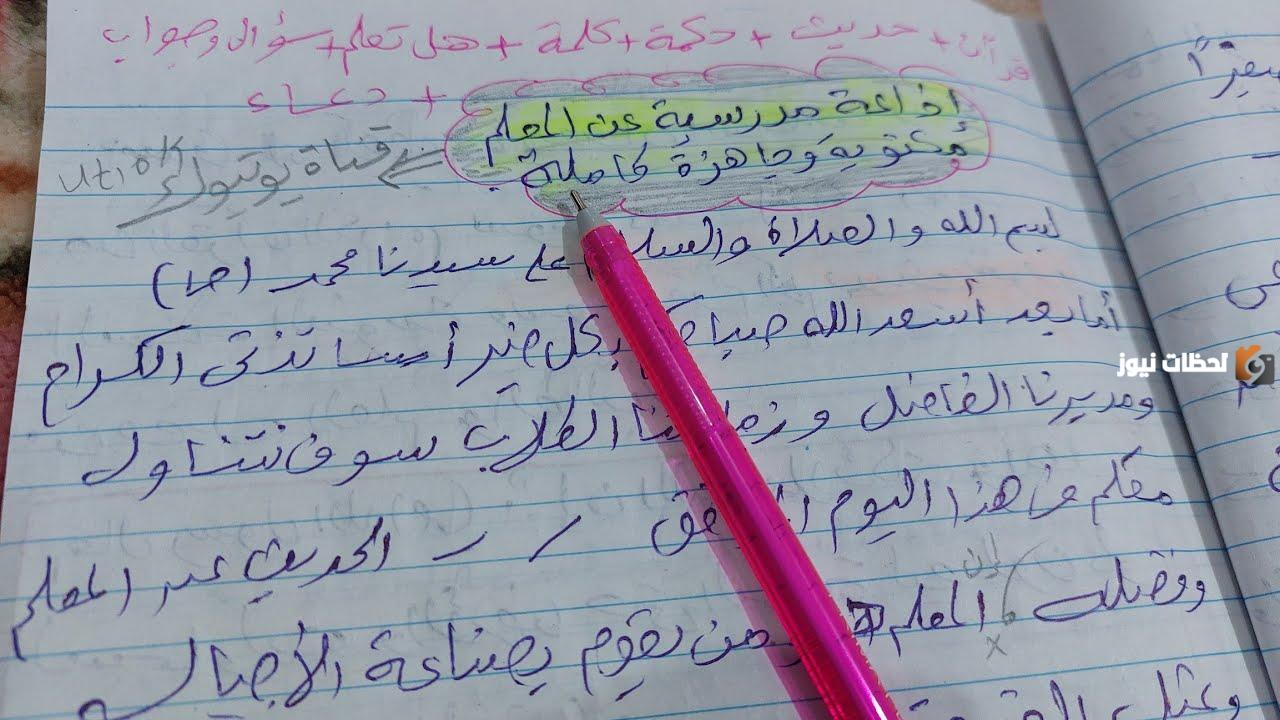 قرآن + حديث + حكمة + كلمة + هل تعلم + سؤال وجواب
+ دعاء
اذاعة مدرسية عن المعلم
مكتوبة وجاهزة كاملة
قناة يوتيوب
بسم الله والصلاة والسلام على سيدنا محمد (ص)
أما بعد أسعد الله صباحكم بكل خير أساتذتي الكرام
ومديرنا الفاضل وزملائنا الطلاب سوف نتناول
معكم في هذا اليوم الموافق / / الحديث عن المعلم
وفضله إن المعلم هو من يقوم بصناعة الأجيال
لحظات نيوز